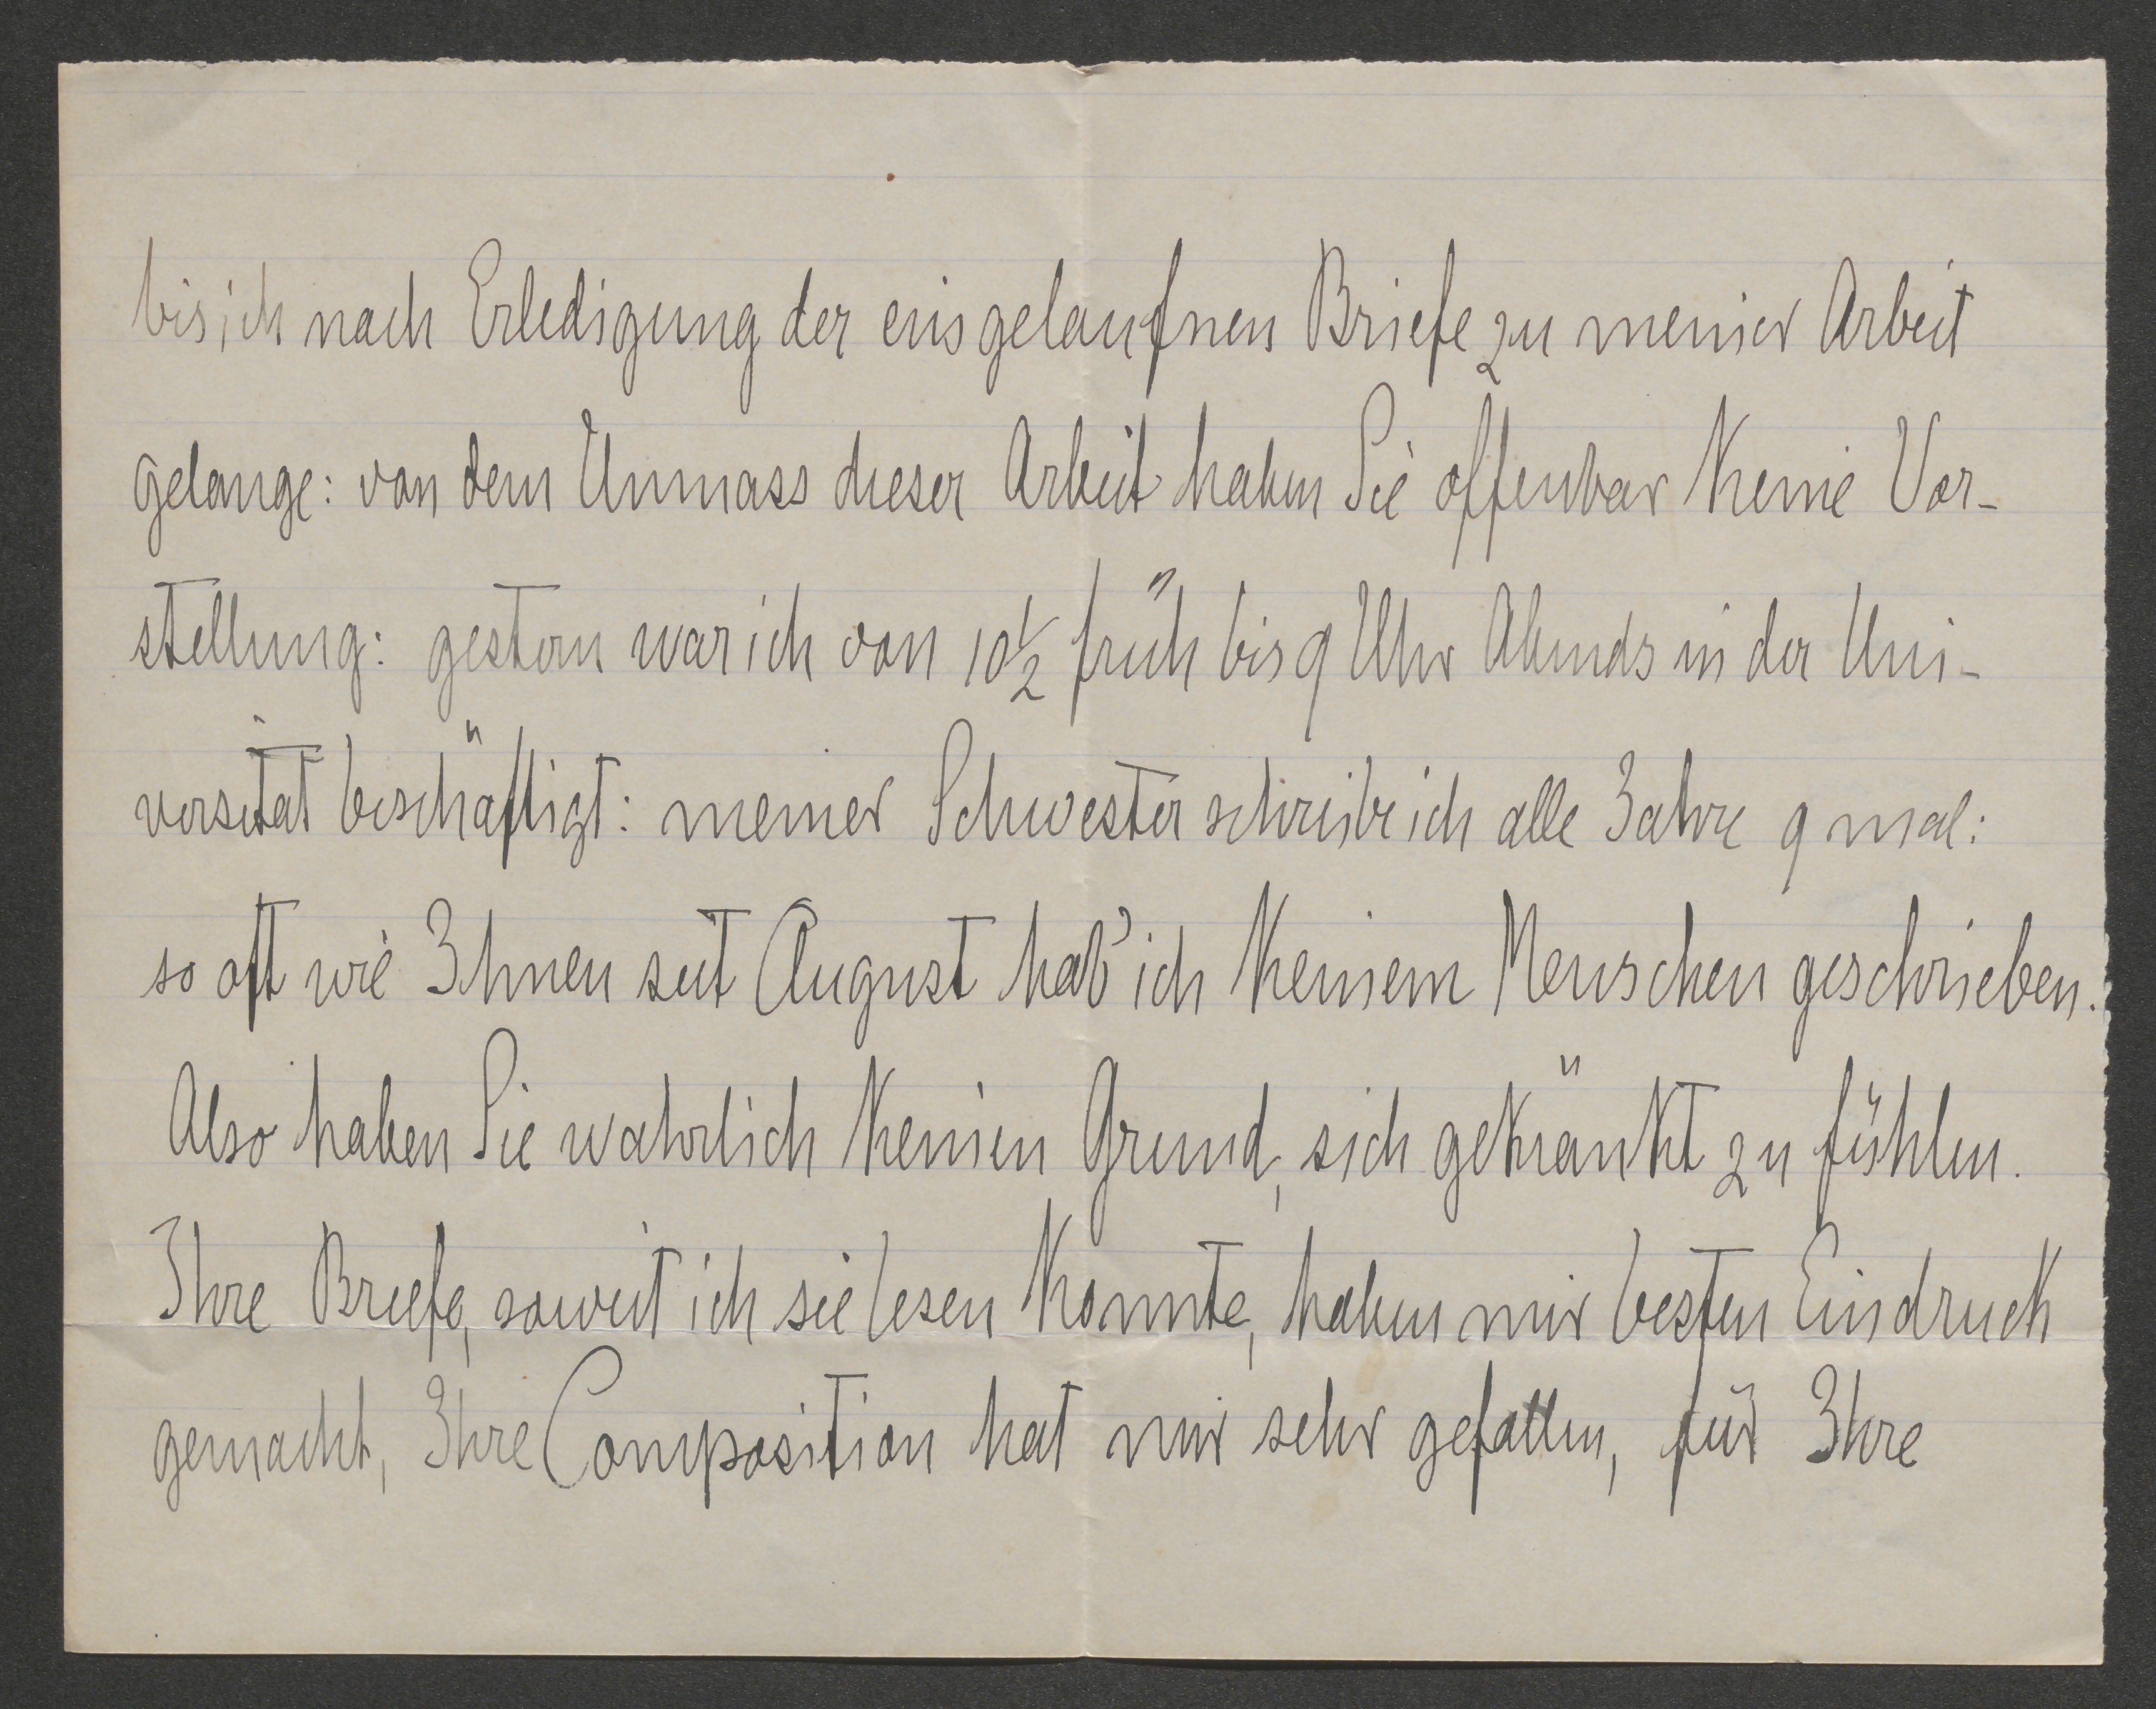 bis ich nach Erledigung der eingelaufnen Briefe zu meiner Arbeit
gelange: von dem Unmass dieser Arbeit haben Sie offenbar keine Vor-
stellung: gestern war ich von 10½ früh bis 9 Uhr Abends in der Uni-
versität beschäftigt: meiner Schwester schreibe ich alle Jahre 9 mal:
so oft wie Ihnen seit August hab' ich keinem Menschen geschrieben.
Also haben Sie wahrlich keinen Grund, sich gekränkt zu fühlen.
Ihre Briefe, soweit ich sie lesen konnte, haben mir besten Eindruck
gemacht, Ihre Composition hat mir sehr gefallen, für Ihre